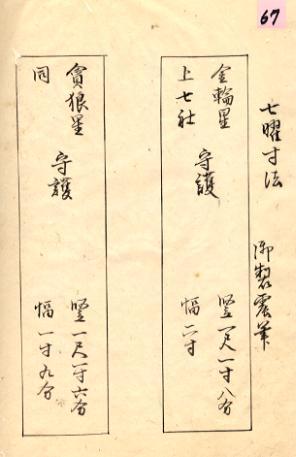 67
七曜寸法　御製震筆
金輪星
上七社
守護
竪一尺一寸八分
幅二寸
貪狼星
同
守護
竪一尺一寸六分
幅一寸九分